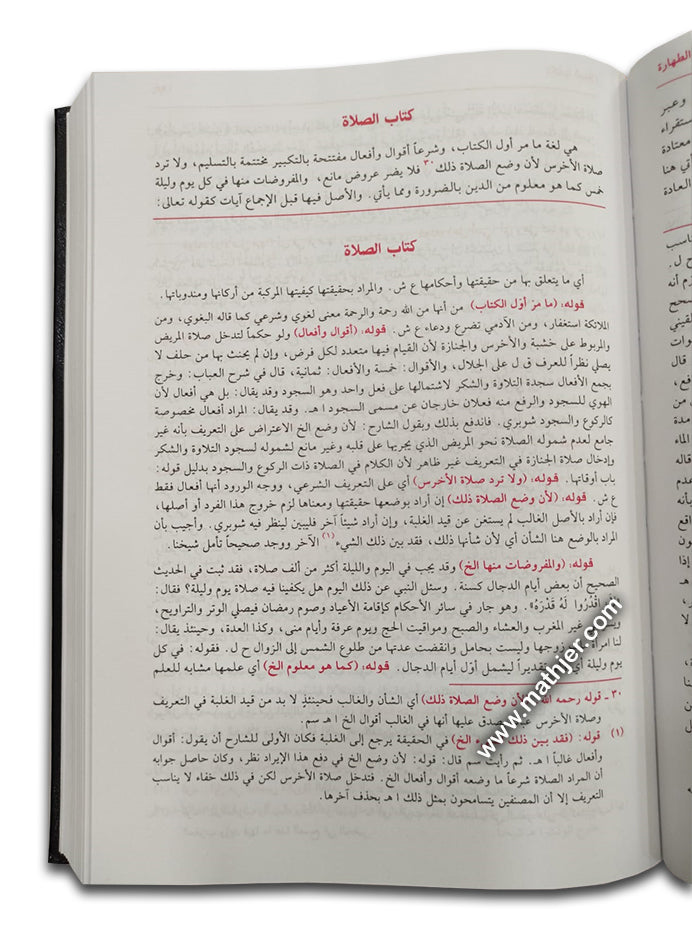 كتاب الصلاة
هي لغة ما مر أول الكتاب، وشرعاً أقوال وأفعال مفتتحة بالتكبير مختتمة بالتسليم، ولا ترد
صلاة الأخرس لأن وضع الصلاة ذلك٣٠ فلا يضر عروض مانع، والمفروضات منها في كل يوم وليلة
خمس كما هو معلوم من الدين بالضرورة ومما يأتي. والأصل فيها قبل الإجماع آيات كقوله تعالى:
كتاب الصلاة
أي ما يتعلق بها من حقيقتها وأحكامها ع ش. والمراد بحقيقتها كيفيتها المركبة من أركانها ومندوباتها.
قوله: (ما مرّ أوّل الكتاب) من أنها من الله رحمة والرحمة معنى لغوي وشرعي كما قاله البغوي، ومن
الملائكة استغفار، ومن الآدمي تضرع ودعاء ع ش. قوله: (أقوال وأفعال) ولو حكماً لتدخل صلاة المريض
والمربوط على خشبة والأخرس والجنازة لأن القيام فيها متعدد لكل فرض، وإن لم يحنث بها من حلف لا
يصلي نظراً للعرف ق ل على الجلال، والأقوال: خمسة والأفعال: ثمانية، قال في شرح العباب: وخرج
بجمع الأفعال سجدة التلاوة والشكر لاشتمالها على فعل واحد وهو السجود وقد يقال: بل هي أفعال لأن
الهوي للسجود والرفع منه فعلان خارجان عن مسمى السجود ا هـ. وقد يقال: المراد أفعال مخصوصة
كالركوع والسجود شوبري. فاندفع بذلك وبقول الشارح: لأن وضع الخ الاعتراض على التعريف بأنه غير
جامع لعدم شموله الصلاة نحو المريض الذي يجريها على قلبه وغير مانع لشموله لسجود التلاوة والشكر
وإدخال صلاة الجنازة في التعريف غير ظاهر لأن الكلام في الصلاة ذات الركوع والسجود بدليل قوله:
باب أوقاتها. قوله: (ولا ترد صلاة الأخرس) أي على التعريف الشرعي، ووجه الورود أنها أفعال فقط
ع ش. قوله: (لأن وضع الصلاة ذلك) إن أراد بوضعها حقيقتها ومعناها لزم خروج هذا الفرد أو أصلها،
فإن أراد بالأصل الغالب لم يستغن عن قيد الغلبة، وإن أراد شيئاً آخر فليبين لينظر فيه شوبري. وأجيب بأن
المراد بالوضع هنا الشأن أي لأن شأنها ذلك، فقد بين ذلك الشيء(١) الآخر ووجد صحيحاً تأمل شيخنا.
قوله: (والمفروضات منها الخ) وقد يجب في اليوم والليلة أكثر من ألف صلاة، فقد ثبت في الحديث
الصحيح أن بعض أيام الدجال كسنة. وسئل النبي عن ذلك اليوم هل يكفينا فيه صلاة يوم وليلة؟ فقال:
اقْدُرُوا لَهُ قَدْرَهُ». وهو جار في سائر الأحكام كإقامة الأعياد وصوم رمضان فيصلي الوتر والتراويح،
غير المغرب والعشاء والصبح ومواقيت الحج ويوم عرفة وأيام منى، وكذا العدة، وحينئذ يقال:
لنا امرأة زوجها وليست بحامل وانقضت عدتها من طلوع الشمس إلى الزوال ح ل. فقوله: في كل
يوم وليلة أي تقديراً ليشمل أوّل أيام الدجال. قوله: (كما هو معلوم الخ) أي علمها مشابه للعلم
٣٠ - قوله رحمه الله لأن وضع الصلاة ذلك) أي الشأن والغالب فحينئذٍ لا بد من قيد الغلبة في التعريف
وصلاة الأخرس يصدق عليها أنها في الغالب أقوال الخ ا هـ سم.
(١) قوله: (فقد بين ذلك الخ) في الحقيقة يرجع إلى الغلبة فكان الأولى للشارح أن يقول: أقوال
وأفعال غالباً ا هـ. ثم رأيت سم قال: قوله: لأن وضع الخ في دفع هذا الإيراد نظر، وكان حاصل جوابه
أن المراد الصلاة شرعاً ما وضعه أقوال وأفعال الخ. فتدخل صلاة الأخرس لكن في ذلك خفاء لا يناسب
التعريف إلا أن المصنفين يتسامحون بمثل ذلك ا هـ بحذف آخرها.
www.mathjer.com
الطهارة